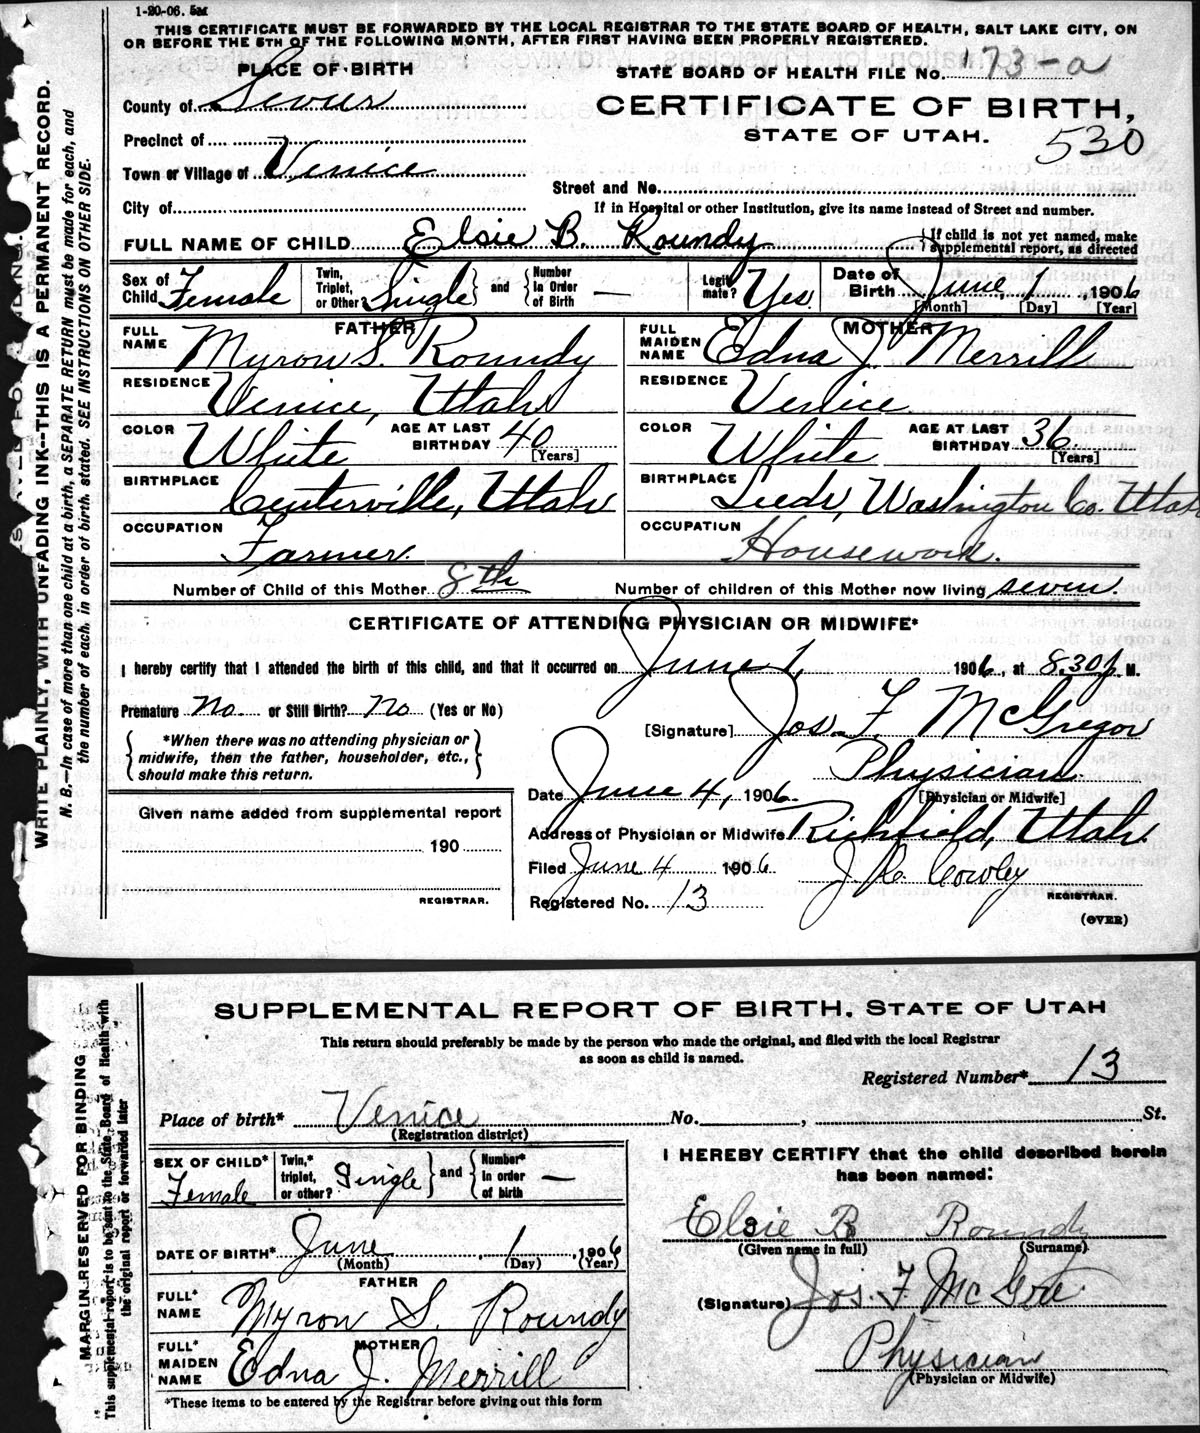 1-20-06. 5M
THIS CERTIFICATE MUST BE FORWARDED BY THE LOCAL REGISTRAR TO THE STATE BOARD OF HEALTH, SALT LAKE CITY, ON
OR BEFORE THE 5TH OF THE FOLLOWING MONTH, AFTER FIRST HAVING BEEN PROPERLY REGISTERED.
WRITE PLAINLY, WITH UNFADING INK--THIS IS A PERMANENT RECORD.
N. B.—In case of more than one child at a birth, a SEPARATE RETURN must be made for each, and
the number of each, in order of birth, stated. SEE INSTRUCTIONS ON OTHER SIDE.
PLACE OF BIRTH
STATE BOARD OF HEALTH FILE No. 173-a
County of Sevier
CERTIFICATE OF BIRTH,
STATE OF UTAH.
530
Precinct of
Town or Village of Venice
Street and No.
City of
If in Hospital or other Institution, give its name instead of Street and number.
FULL NAME OF CHILD Elsie B. Roundy
If child is not yet named, make
supplemental report, as directed
Sex of Child Female
Twin, Triplet, or Other Single
and
Number In Order of Birth —
Legitimate? Yes
Date of Birth June, 1, 1906
[Month] [Day] [Year]
FATHER
FULL NAME Myron S. Roundy
MOTHER
FULL MAIDEN NAME Edna J. Merrill
RESIDENCE Venice, Utah
RESIDENCE Venice
COLOR White AGE AT LAST BIRTHDAY 40 [Years]
COLOR White AGE AT LAST BIRTHDAY 36. [Years]
BIRTHPLACE Centerville, Utah
BIRTHPLACE Leeds, Washington Co. Utah
OCCUPATION Farmer.
OCCUPATION Housework.
Number of Child of this Mother 8th
Number of children of this Mother now living seven.
CERTIFICATE OF ATTENDING PHYSICIAN OR MIDWIFE*
I hereby certify that I attended the birth of this child, and that it occurred on June 1, 1906, at 8.30 p. M.
Premature No. or Still Birth? No (Yes or No)
[Signature] Jos. F. McGregor
*When there was no attending physician or
midwife, then the father, householder, etc.,
should make this return.
Physician.
[Physician or Midwife]
Date June 4, 1906.
Given name added from supplemental report
Address of Physician or Midwife Richfield, Utah.
190
Filed June 4 1906 J. R. Cowley
REGISTRAR.
REGISTRAR.
Registered No. 13
(OVER)
SUPPLEMENTAL REPORT OF BIRTH, STATE OF UTAH
This return should preferably be made by the person who made the original, and filed with the local Registrar
as soon as child is named.
MARGIN RESERVED FOR BINDING
This supplemental report is to be sent to the State Board of Health with
the original report or forwarded later
Registered Number* 13
Place of birth* Venice No. , St.
(Registration district)
SEX OF CHILD* Female
Twin,* triplet, or other? Single
and
Number* in order of birth —
I HEREBY CERTIFY that the child described herein
has been named:
Elsie B Roundy
(Given name in full) (Surname)
DATE OF BIRTH* June, 1, 1906
(Month) (Day) (Year)
FATHER
FULL* NAME Myron S. Roundy
(Signature) Jos. F. McGre
MOTHER
FULL* MAIDEN NAME Edna J. Merrill
Physician
(Physician or Midwife)
*These items to be entered by the Registrar before giving out this form